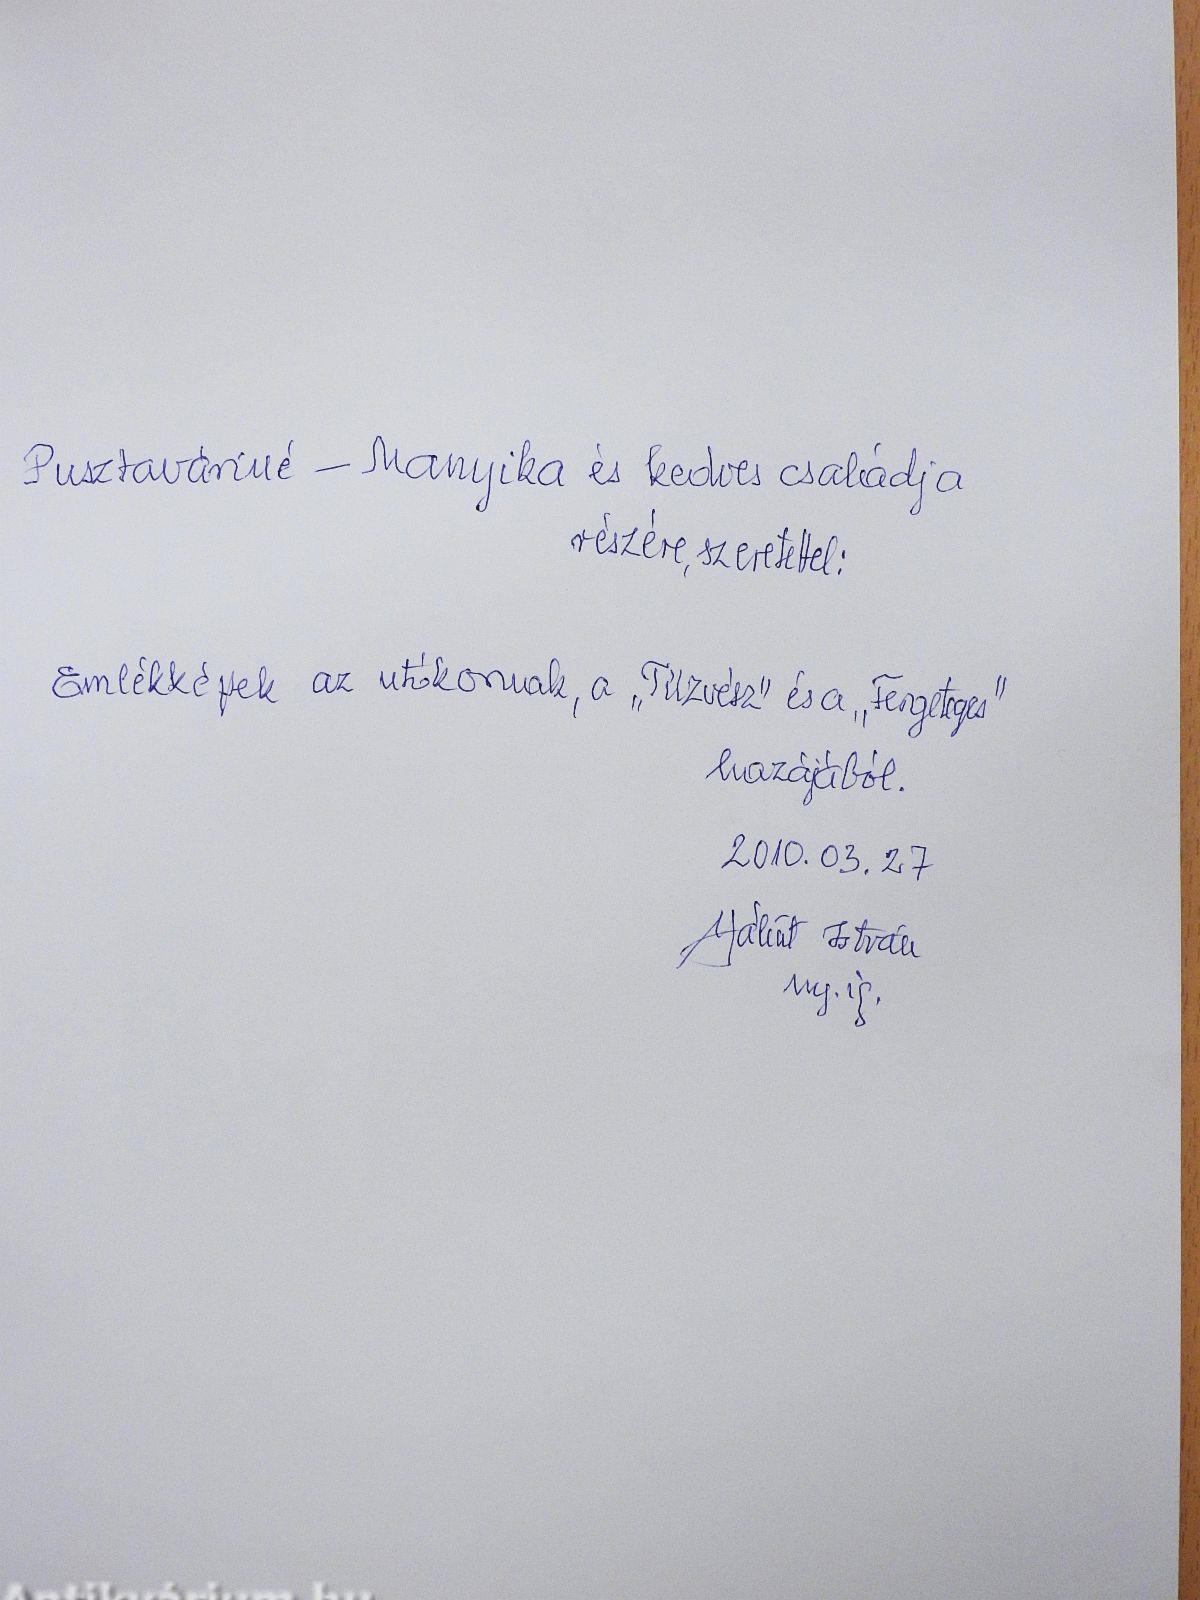 Pusztaváriné – Manyika és kedves családja
részére, szeretettel:
Emlékképek az utókornak, a „Tűzvész" és a „Fergeteges"
hazájából.
2010.03.27
István
ny.ig.
Antikvárium.hu